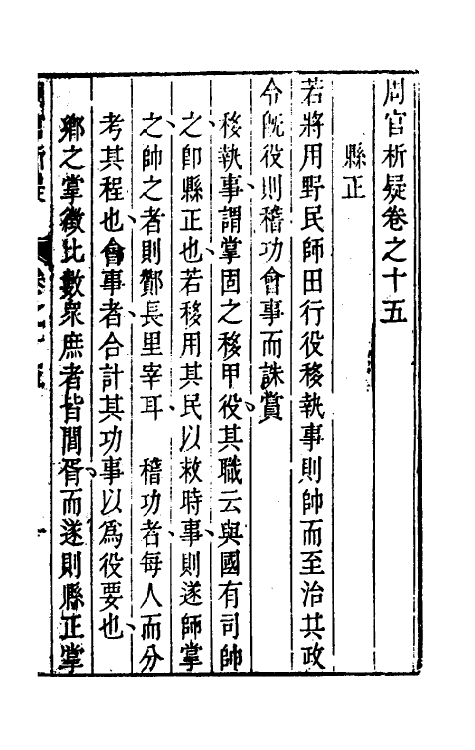 周官析疑卷之十五
縣正
若將用野民師田行役移執事則帥而至治其政
令既役則稽功會事而誅賞
移執事謂掌固之移甲役其職云與國有司帥
之卽縣正也若移用其民以救時事則遂師掌
之帥之者則酇長里宰耳 稽功者每人而分
考其程也會事者合計其功事以爲役要也
鄉之掌徵比數衆庶者皆閭胥而遂則縣正掌